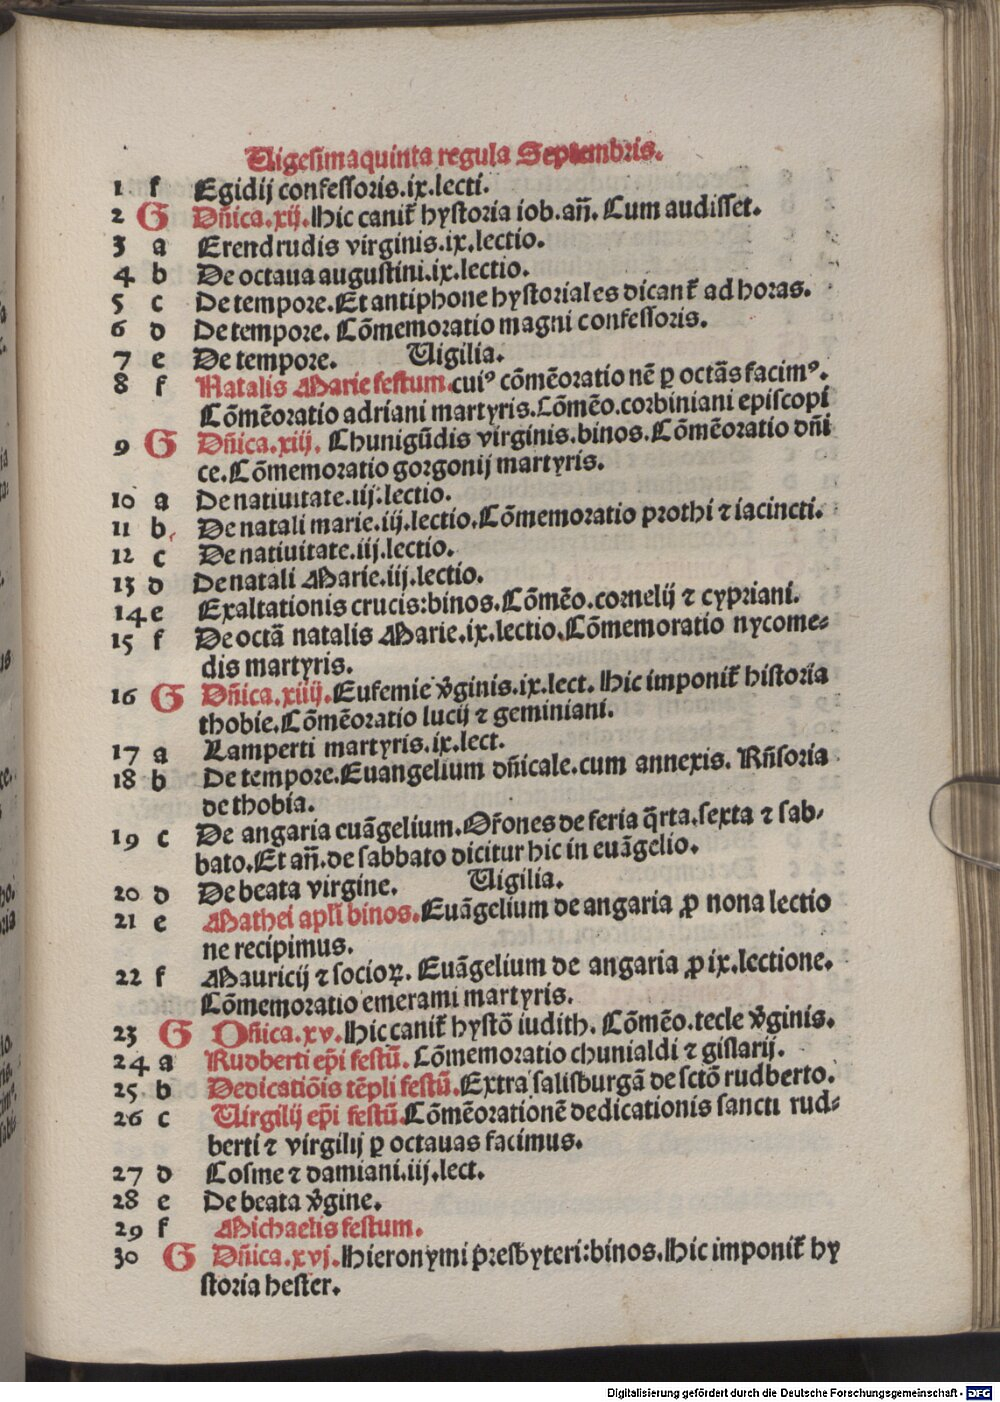 Vigesimaquinta regula Septembris.
1 f Egidij confessoris.ix.lecti.
2 G Dñica.xij.Hic canit᷑ hystoria iob.añ. Cum audisset.
3 a Erendrudis virginis.ix.lectio.
4 b De octaua augustini.ix.lectio.
5 c De tempore.Et antiphone hystoriales dicant᷑ ad horas.
6 d De tempore. Cõmemoratio magni confessoris.
7 e De tempore. Vigilia.
8 f Natalis Marie festum.cuiꝰ cõmẽoratio nẽ ꝑ octãs facimꝰ.
Cõmẽoratio adriani martyris.Cõmẽo.corbiniani episcopi
9 G Dñica.xiij. Chunigũdis virginis.binos.Cõmẽoratio dñi
ce.Cõmemoratio gorgonij martyris.
10 a De natiuitate.iij.lectio.
11 b De natali marie.iij.lectio.Cõmemoratio prothi ⁊ iacincti.
12 c De natiuitate.iij.lectio.
13 d De natali Marie.iij.lectio.
14 e Exaltationis crucis:binos.Cõmẽo.cornelij ⁊ cypriani.
15 f De octã natalis Marie.ix.lectio.Cõmemoratio nycome⸗
dis martyris.
16 G Dñica.xiiij.Eufemie v̾ginis.ix.lect. Hic imponit᷑ historia
thobie.Cõmẽoratio lucij ⁊ geminiani.
17 a Lamperti martyris.ix.lect.
18 b De tempore.Euangelium dñicale.cum annexis. Rñsoria
de thobia.
19 c De angaria euãgelium.Or̃ones de feria q̃rta.sexta ⁊ sab⸗
bato.Et añ.de sabbato dicitur hic in euãgelio.
20 d De beata virgine. Vigilia.
21 e Mathei apl̃i binos.Euãgelium de angaria ꝓ nona lectio
ne recipimus.
22 f Mauricij ⁊ socioꝝ. Euãgelium de angaria ꝓ ix.lectione.
Cõmemoratio emerami martyris.
23 G Dñica.xv.Hic canit᷑ hystõ iudith. Cõmẽo.tecle v̾ginis.
24 a Rudberti ep̃i festũ. Cõmemoratio chunialdi ⁊ gislarij.
25 b Dedicatiõis tẽpli festũ.Extra salisburgã de sctõ rudberto.
26 c Virgilij ep̃i festũ.Cõmẽorationẽ dedicationis sancti rud⸗
berti ⁊ virgilij ꝑ octauas facimus.
27 d Cosme ⁊ damiani.iij.lect.
28 e De beata v̾gine.
29 f Michaelis festum.
30 G Dñica.xvj.Hieronymi p̃resbyteri:binos.Hic imponit᷑ hy
storia hester.
Digitalisierung gefördert durch die Deutsche Forschungsgemeinschaft - DFG